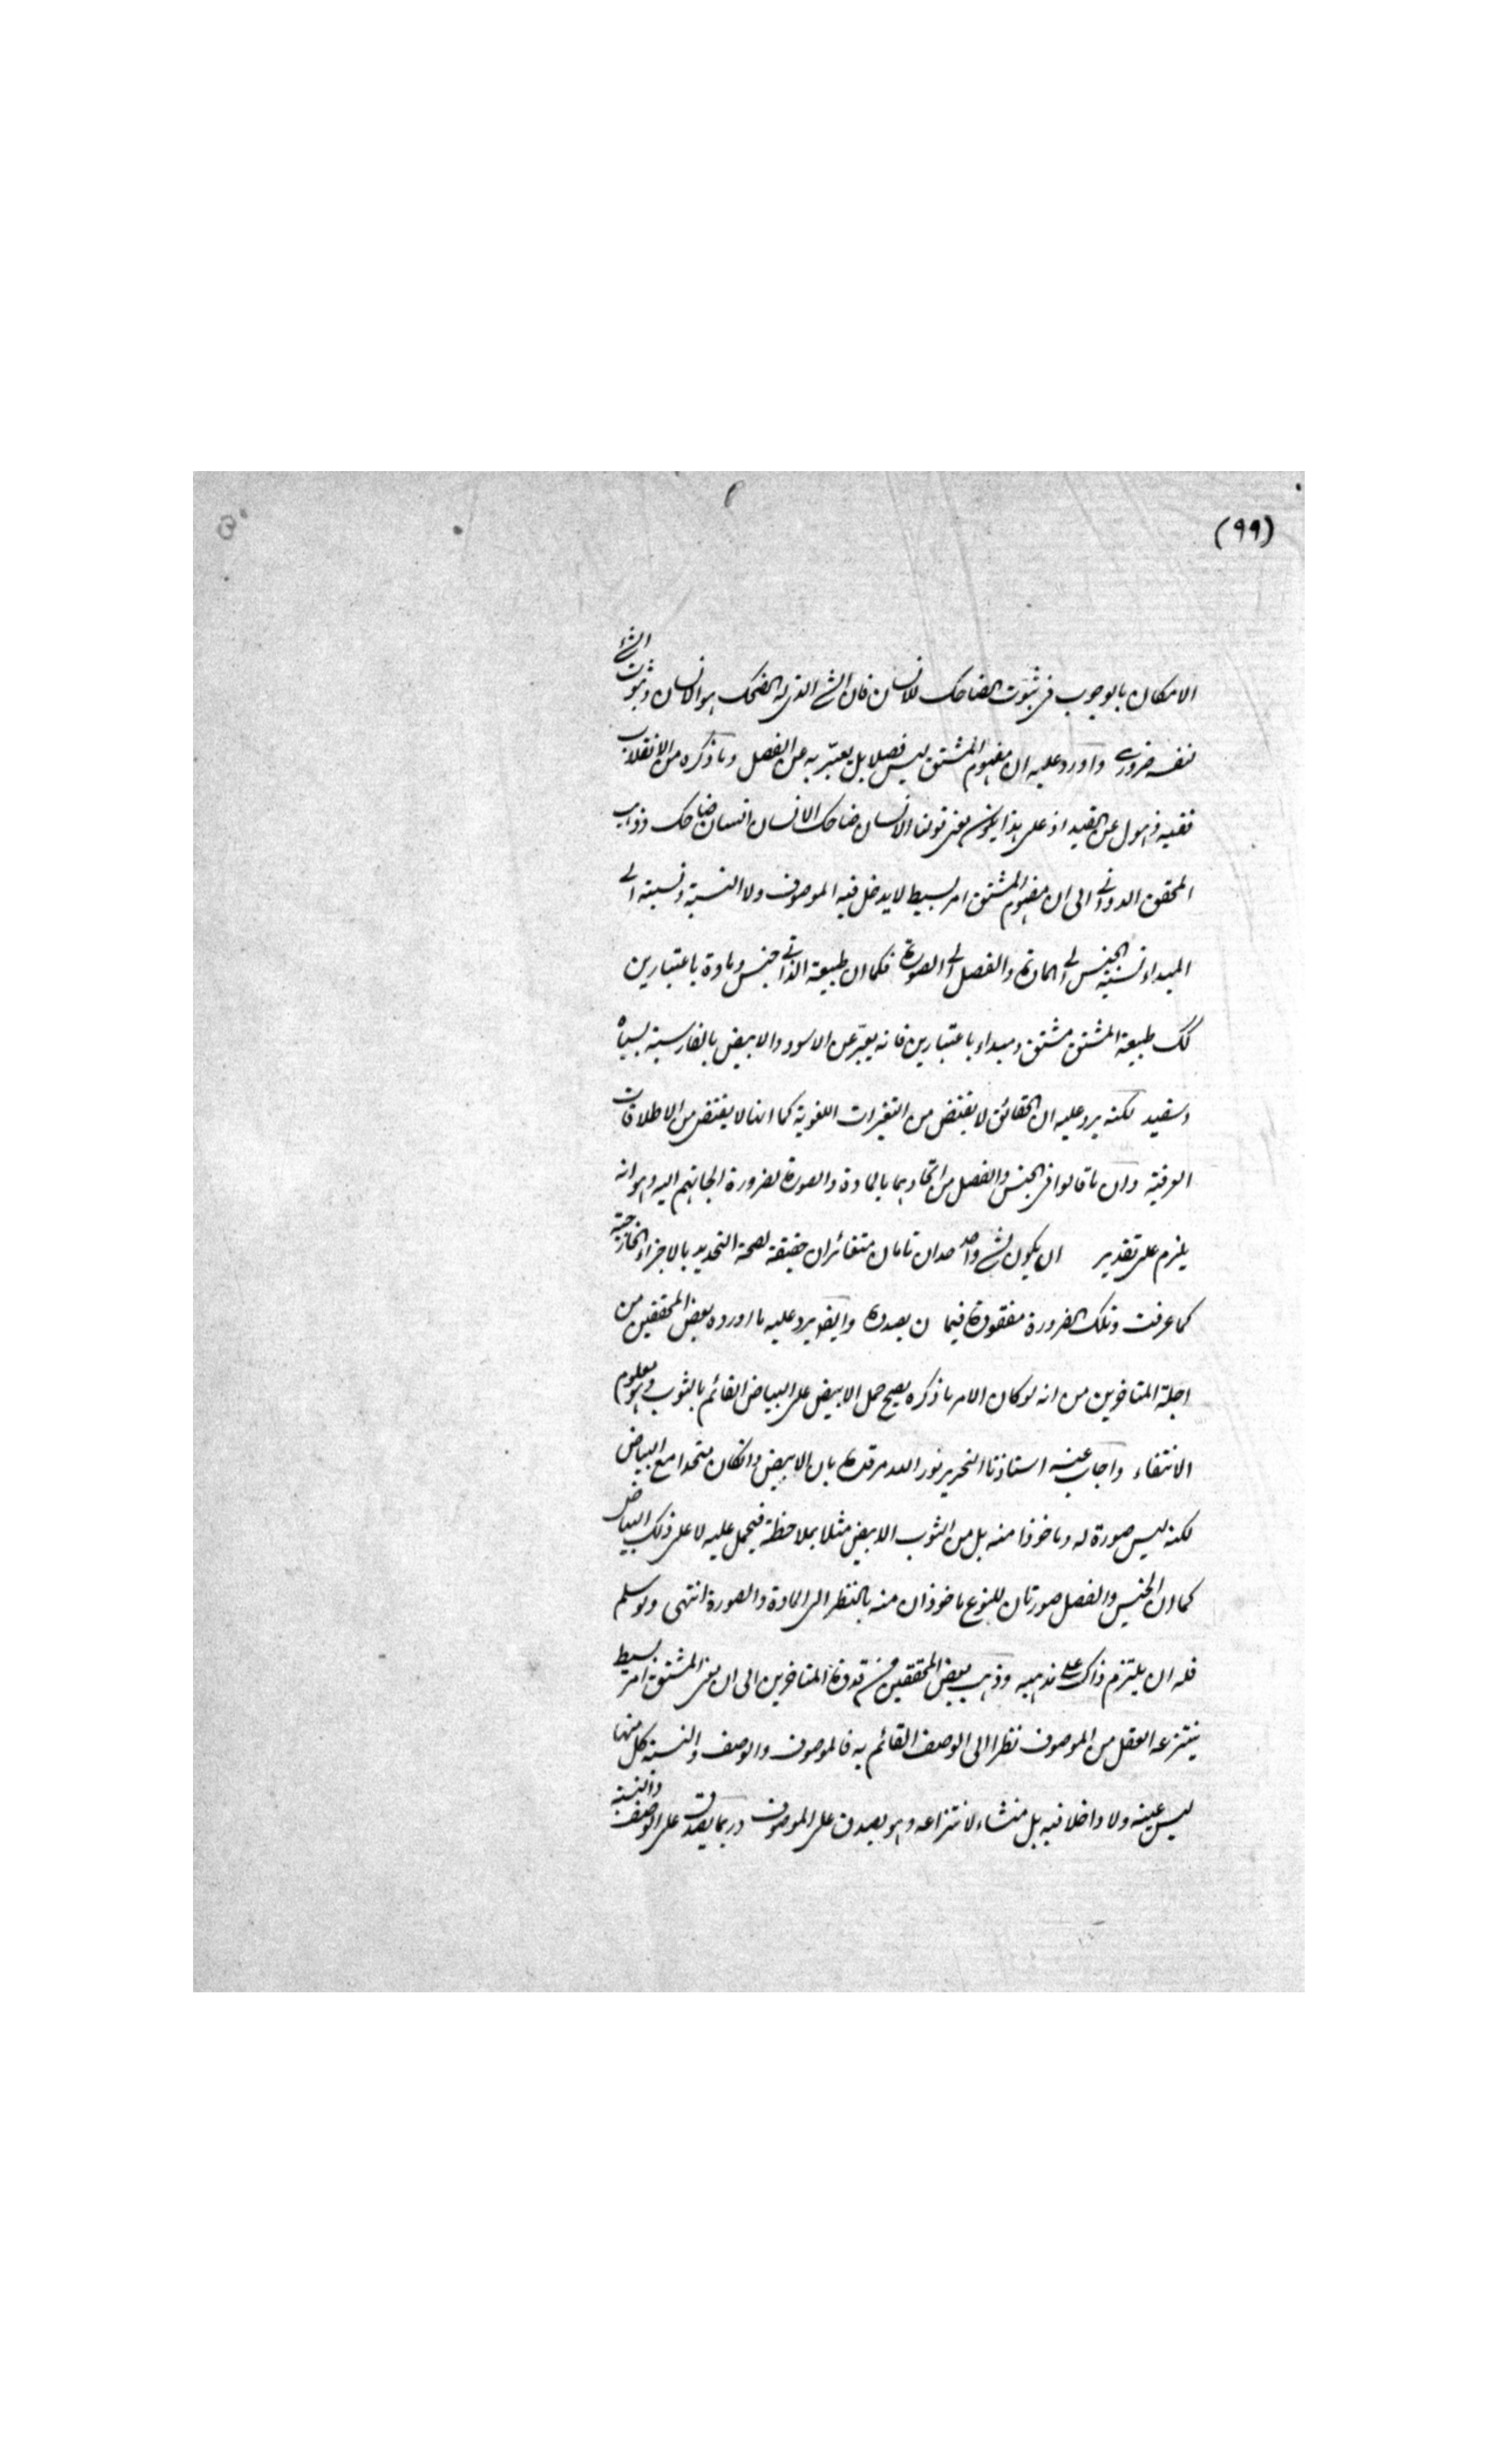 (٩٩)
الامكان بالوجوب فى ثبوت الضاحك للانسان فان الشئ الذى له الضحك هو الانسان وثبوت الشئ
لنفسه ضرورى واورد عليه ان مفهوم المشتق ليس فصلا بل يعبّر به عن الفصل وما ذكره من الانقلاب
ففيه ذهول عن القيد اذ على هذا يكون معنى قولنا الانسان ضاحك الانسان انسان ضاحك وذهب
المحقق الدوانى الى ان مفهوم المشتق امر بسيط لا يدخل فيه الموصوف ولا النسبة ونسبته الى
المبداء نسبة الجنس الى المادة والفصل الى الصورة فكما ان طبيعة الذاتى جنس ومادة باعتبارين
كك طبيعة المشتق مشتق ومبداء باعتبارين فانه يعبّر عن الاسود والابيض بالفارسية بسياه
وسفيد لكنه يرد عليه ان الحقائق لا يقتنص من التغيرات اللغوية كما انها لا يقتنص من الاطلاقات
العرفية وان ما قالوا فى الجنس والفصل من اتحادهما بالمادة والصورة لضرورة الجاتهم اليه وهو انه
يلزم على تقدير ان يكون لشئ واحد حدان تامان متغائران حقيقة لصحة التحديد بالاجزاء الخارجية
كما عرفت وتلك الضرورة مفقودة فيما ن بصدده وايضا يرد عليه ما اورده بعض المحققين من
اجلة المتاخرين من انه لو كان الامر ما ذكره يصح حمل الابيض على البياض القائم بالثوب وهو معلوم
الانتفاء واجاب عنه استاذنا النحرير نور الله مرقده بان الابيض وان كان متحدا مع البياض
لكنه ليس صورة له وماخوذا منه بل من الثوب الابيض مثلا بملاحظة فيحمل عليه لا على ذلك البياض
كما ان الجنس والفصل صورتان للنوع ماخوذان منه بالنظر الى المادة والصورة انتهى ولو سلم
فله ان يلتزم ذاك على مذهبه وذهب بعض المحققين من قدوة المتاخرين الى ان معنى المشتق امر بسيط
ينتزعه العقل من الموصوف نظرا الى الوصف القائم به فالموصوف والوصف والنسبة كل منها
ليس عينه ولا داخلا فيه بل منشاء لانتزاعه وهو يصدق على الموصوف وربما يصدق على الوصف والنسبة